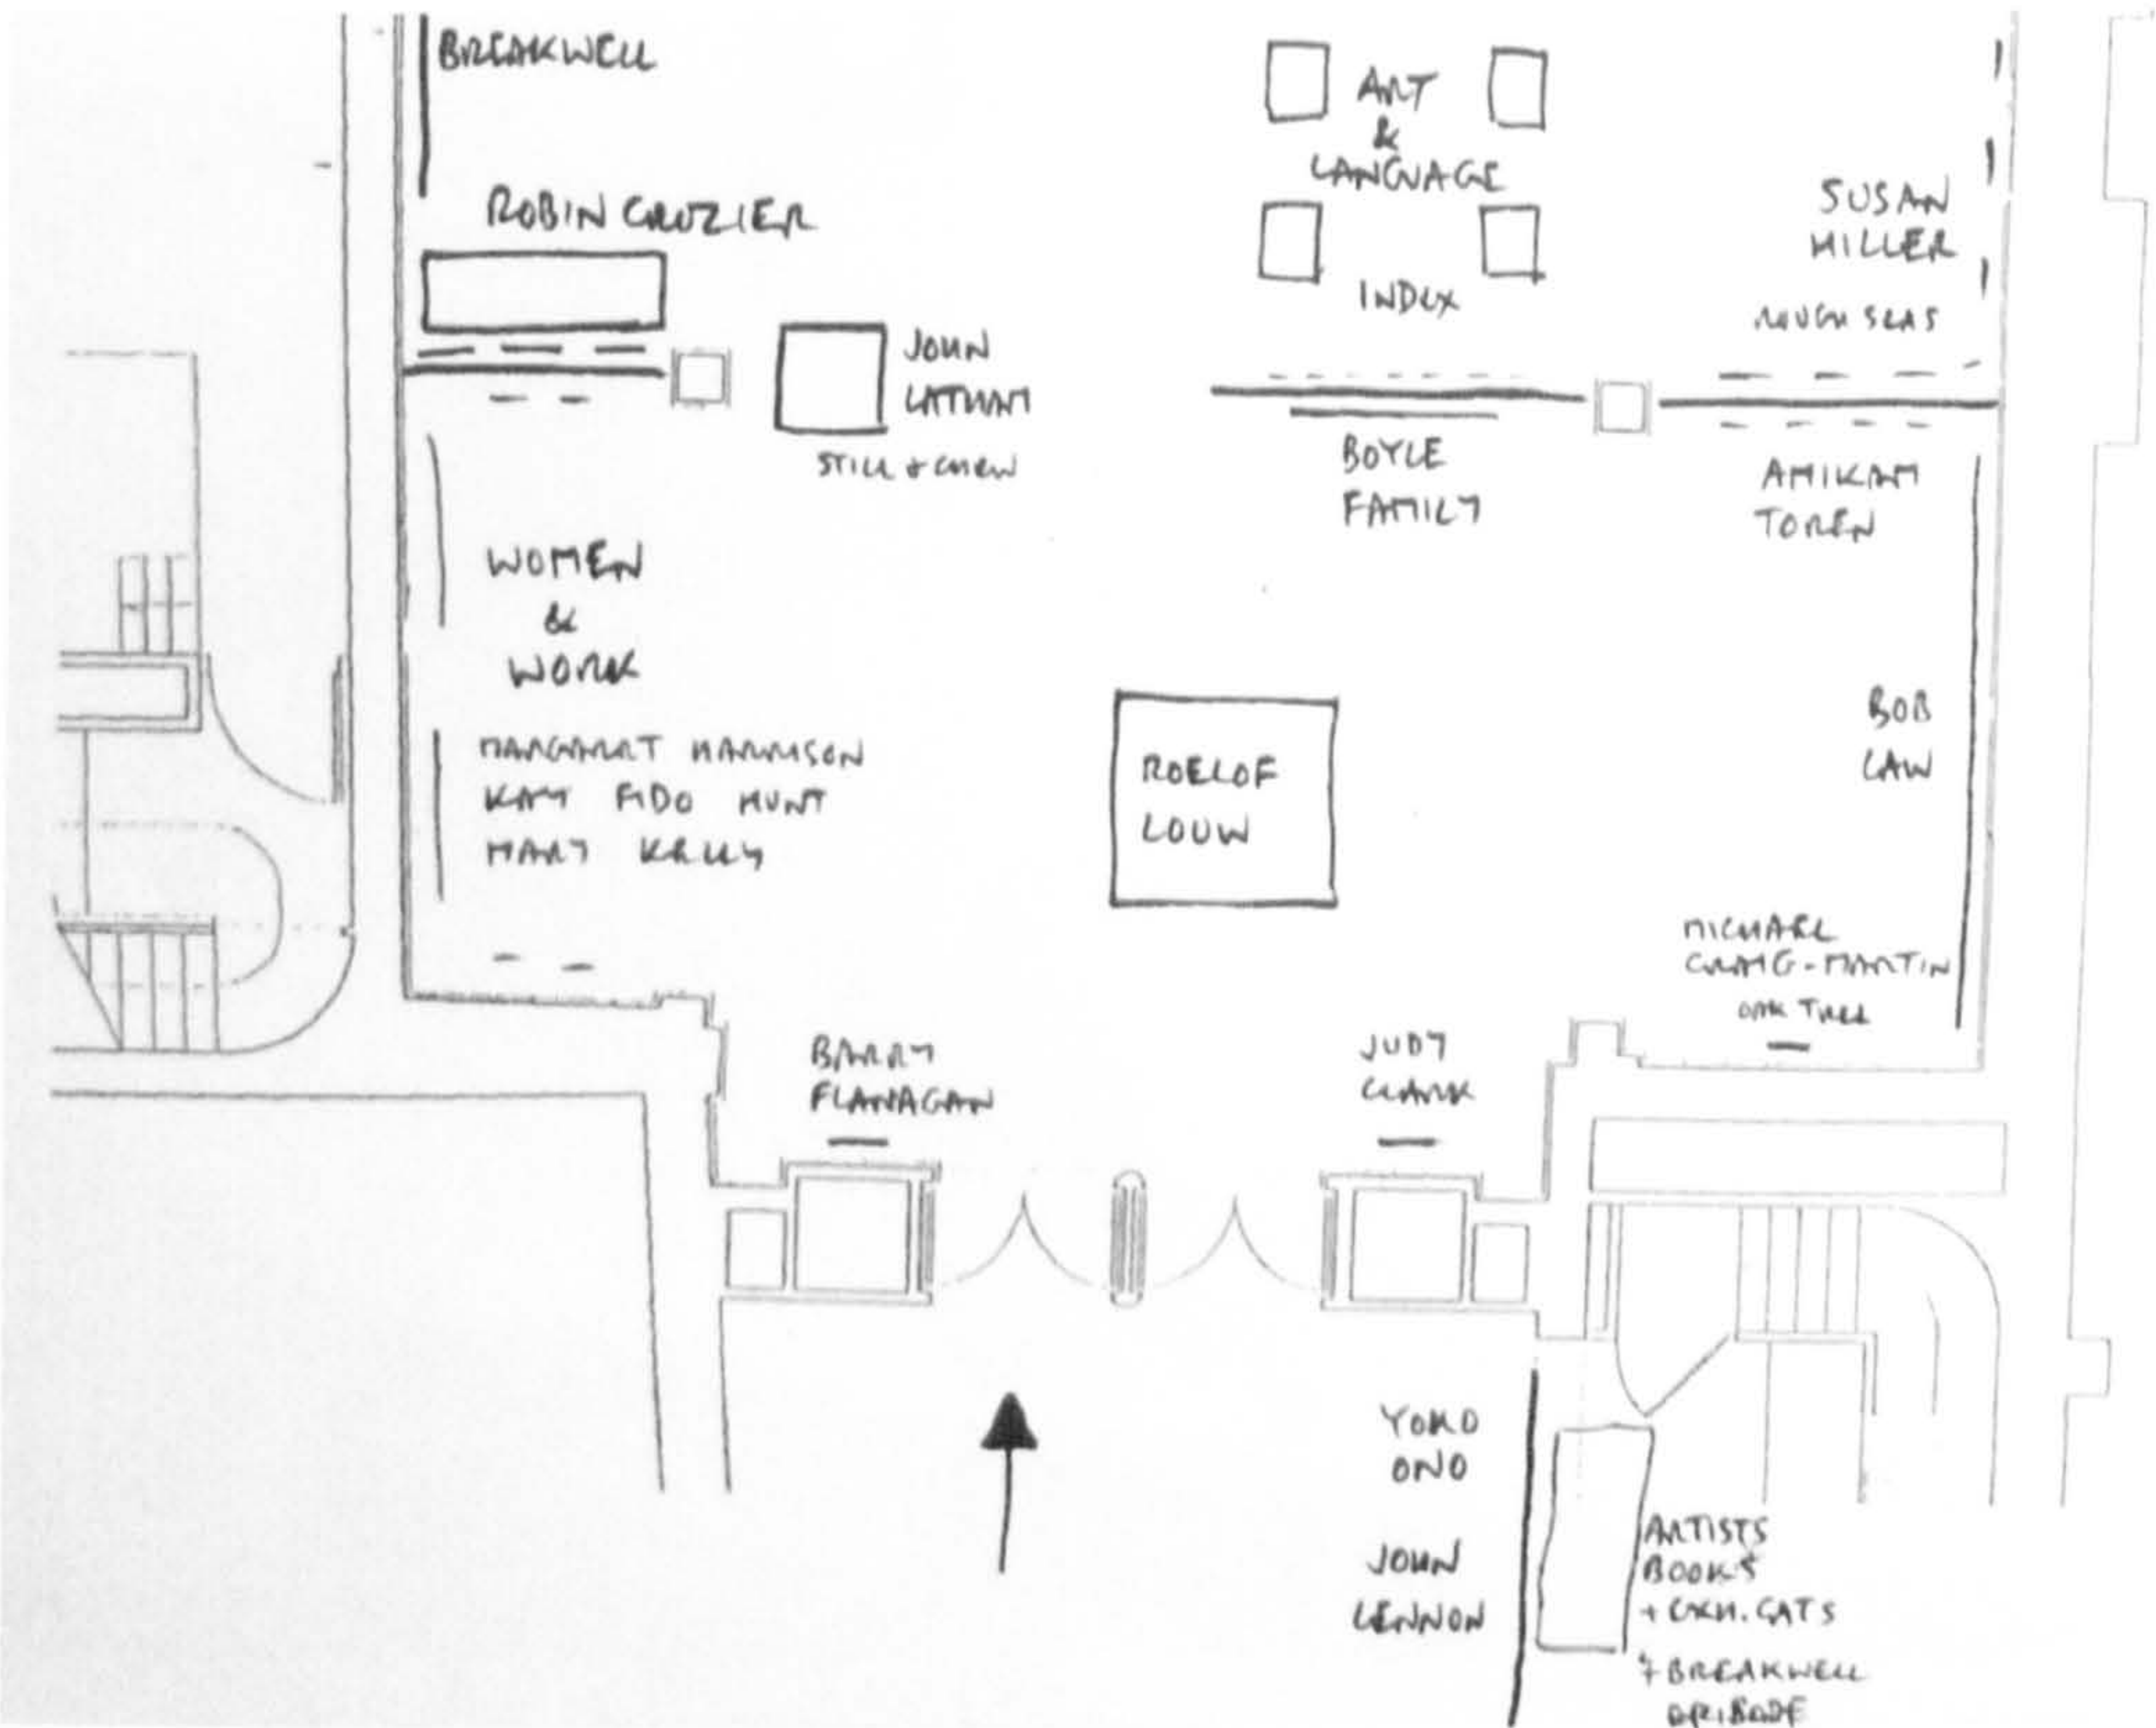 BREAKWELL
ROBIN CROZIER
JOHN
LATHAM
STILL & CHEW
ART
&
LANGUAGE
INDEX
SUSAN
HILLER
ROUGH SEAS
BOYLE
FAMILY
AMIKAM
TOREN
WOMEN
&
WORK
MARGARET HARRISON
KAY FIDO HUNT
MARY KELLY
ROELOF
LOUW
BOB
LAW
MICHAEL
CRAIG-MARTIN
OAK TREE
BARRY
FLANAGAN
JUDY
CLARK
YOKO
ONO
JOHN
LENNON
ARTISTS
BOOKS
+ EXH. CATS
+ BREAKWELL